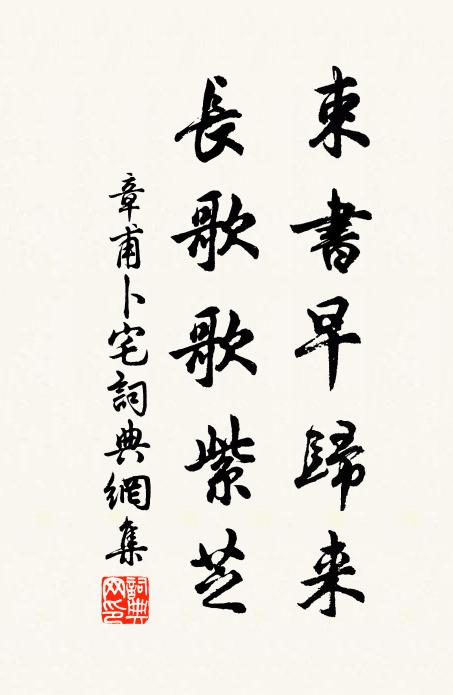 束書早歸来
長歌歌紫芝
章甫卜宅詞典網集
詞典網印